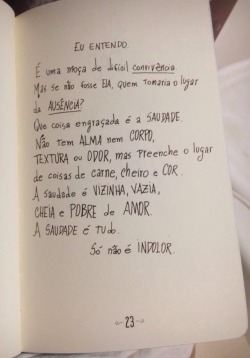 EU ENTENDO.
É uma moça de difícil convivência.
Mas se não fosse ELA, quem tomaria o lugar
da AUSÊNCIA?
Que coisa engraçada é a SAUDADE.
Não tem ALMA nem CORPO,
TEXTURA ou ODOR, mas preenche o lugar
de coisas de carne, cheiro e COR.
A saudade é VIZINHA, VAZIA,
CHEIA e POBRE de AMOR.
A SAUDADE é TUDO.
Só não é INDOLOR.
23